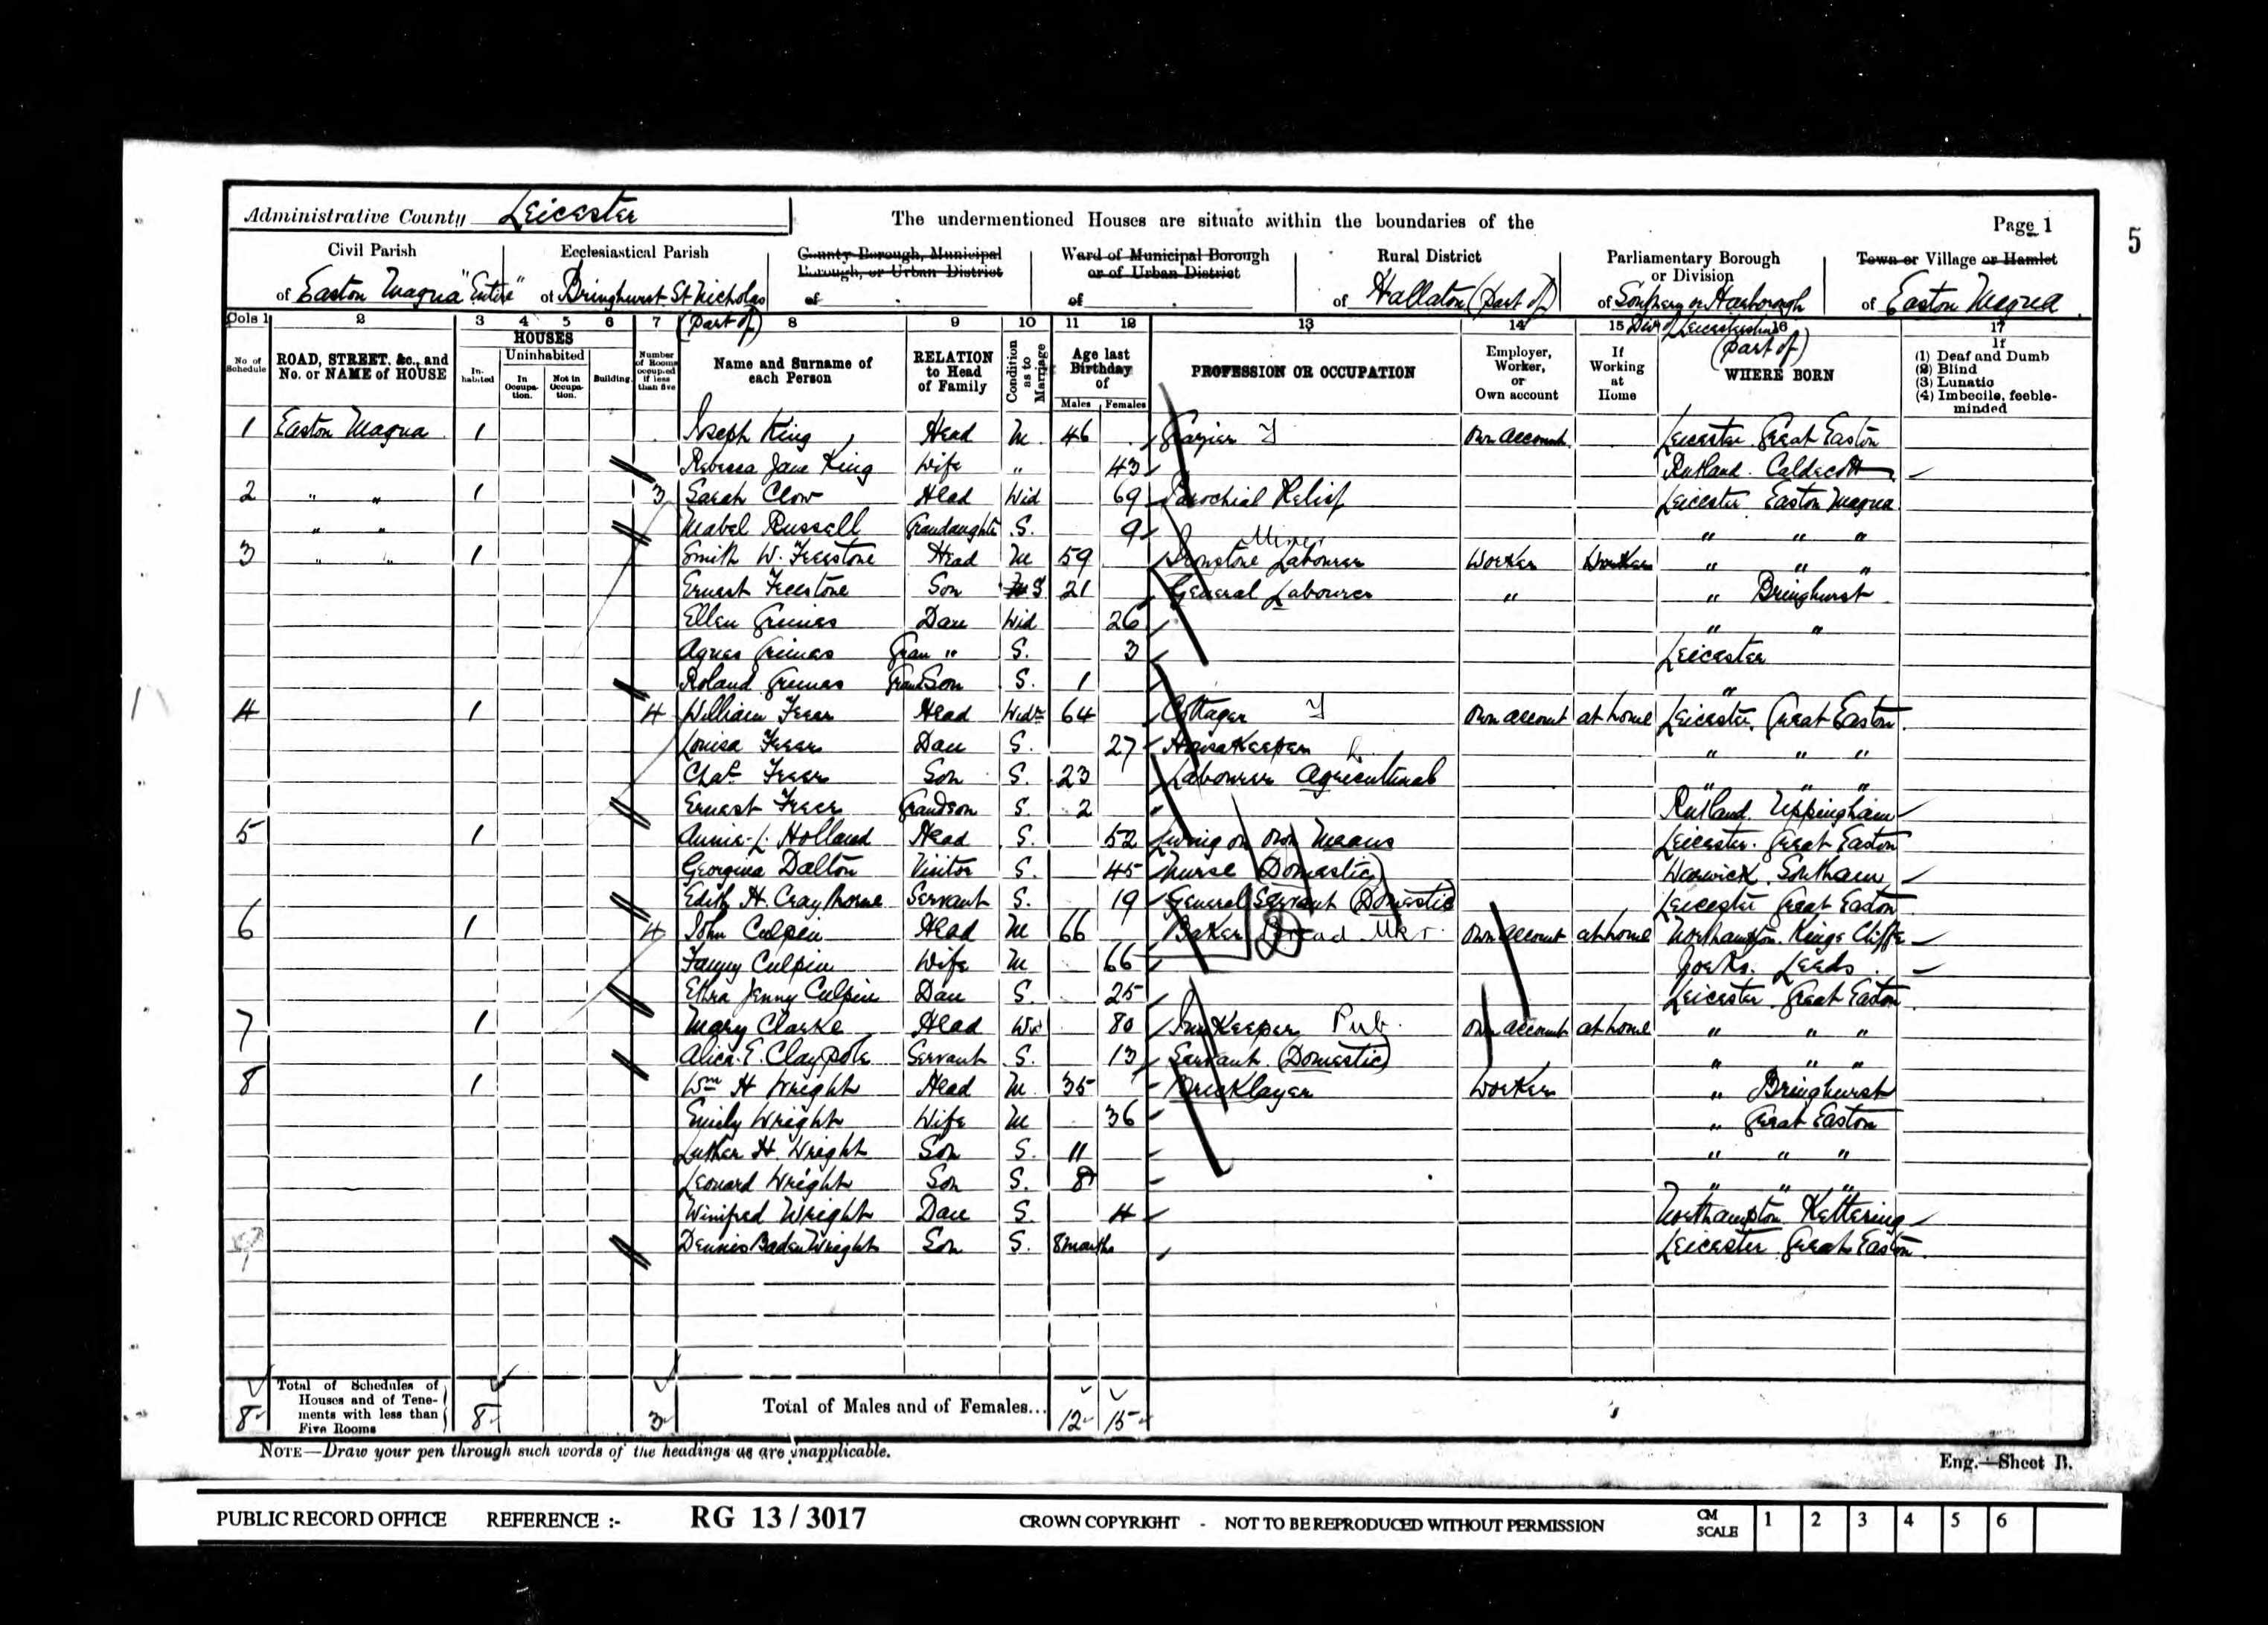 Administrative County Leicester The undermentioned Houses are situate within the boundaries of the Page 1
5
Civil Parish Ecclesiastical Parish County Borough, Municipal Borough, or Urban District Ward of Municipal Borough or of Urban District Rural District Parliamentary Borough or Division Town or Village or Hamlet
of Easton Magna "Entire" of Bringhurst St Nicholas (part of) of of of Hallaton (part of) of Southern or Harborough Div of Leicestershire (part of) of Easton Magna
Cols 1 2 3 4 5 6 7 8 9 10 11 12 13 14 15 16 17
No of Schedule ROAD, STREET, &c., and No. or NAME of HOUSE HOUSES Inhabited Uninhabited In Occupation. Not in Occupation. Building. Number of Rooms occupied if less than five Name and Surname of each Person RELATION to Head of Family Condition as to Marriage Age last Birthday of Males Females PROFESSION OR OCCUPATION Employer, Worker, or Own account If Working at Home WHERE BORN If (1) Deaf and Dumb (2) Blind (3) Lunatic (4) Imbecile, feeble-minded
1 Easton Magna 1 Joseph King Head M 46 Grazier Own account Leicester Great Easton
Rebecca Jane King Wife " 43 Rutland Caldecott
2 " " 1 3 Sarah Clow Head Wid 69 Parochial Relief Leicester Easton Magna
" " Mabel Russell Grandaughter S. 9 " " "
3 " " 1 Smith W. Freestone Head M 59 Ironstone Miner Labourer Worker Worker " " "
Ernest Freestone Son S 21 General Labourer " " Bringhurst
Ellen Grimes Dau Wid 26 " "
Agnes Grimes Gran " S. 3 Leicester
Roland Grimes GrandSon S. 1 "
4 1 4 William Freer Head Widr 64 Cottager Own account at home Leicester Great Easton
Louisa Freer Dau S. 27 Housekeeper " " "
Chas Freer Son S. 23 Labourer Agricultural " " "
Ernest Freer Grandson S. 2 Rutland Uppingham
5 1 Annie L. Holland Head S. 52 Living on own Means Leicester Great Easton
Georgina Dalton Visitor S. 45 Nurse (Domestic) Warwick Southam
Edith H. Craythorne Servant S. 19 General Servant (Domestic) Leicester Great Easton
6 1 4 John Culpin Head M 66 Baker Bread Mkr Own account at home Northampton Kings Cliffe
Fanny Culpin Wife M 66 Yorks. Leeds
Jenny Culpin Dau S. 25 Leicester Great Easton
7 1 Mary Clarke Head Wid 80 Inn Keeper Pub. Own account at home " " "
Alice E. Claypole Servant S. 13 Servant (Domestic) " " "
8 1 Wm H Wright Head M 35 Bricklayer Worker " Bringhurst
Emily Wright Wife M 36 " Great Easton
Luther H. Wright Son S. 11 " " "
Leonard Wright Son S. 8 " " "
Winifred Wright Dau S. 4 Northampton Kettering
Dennis Baden Wright Son S. 8 months Leicester Great Easton
8 Total of Schedules of Houses and of Tenements with less than Five Rooms 8 3 Total of Males and of Females... 12 15
NOTE—Draw your pen through such words of the headings as are inapplicable.
Eng.—Sheet B.
PUBLIC RECORD OFFICE REFERENCE :- RG 13 / 3017 CROWN COPYRIGHT - NOT TO BE REPRODUCED WITHOUT PERMISSION CM SCALE 1 2 3 4 5 6